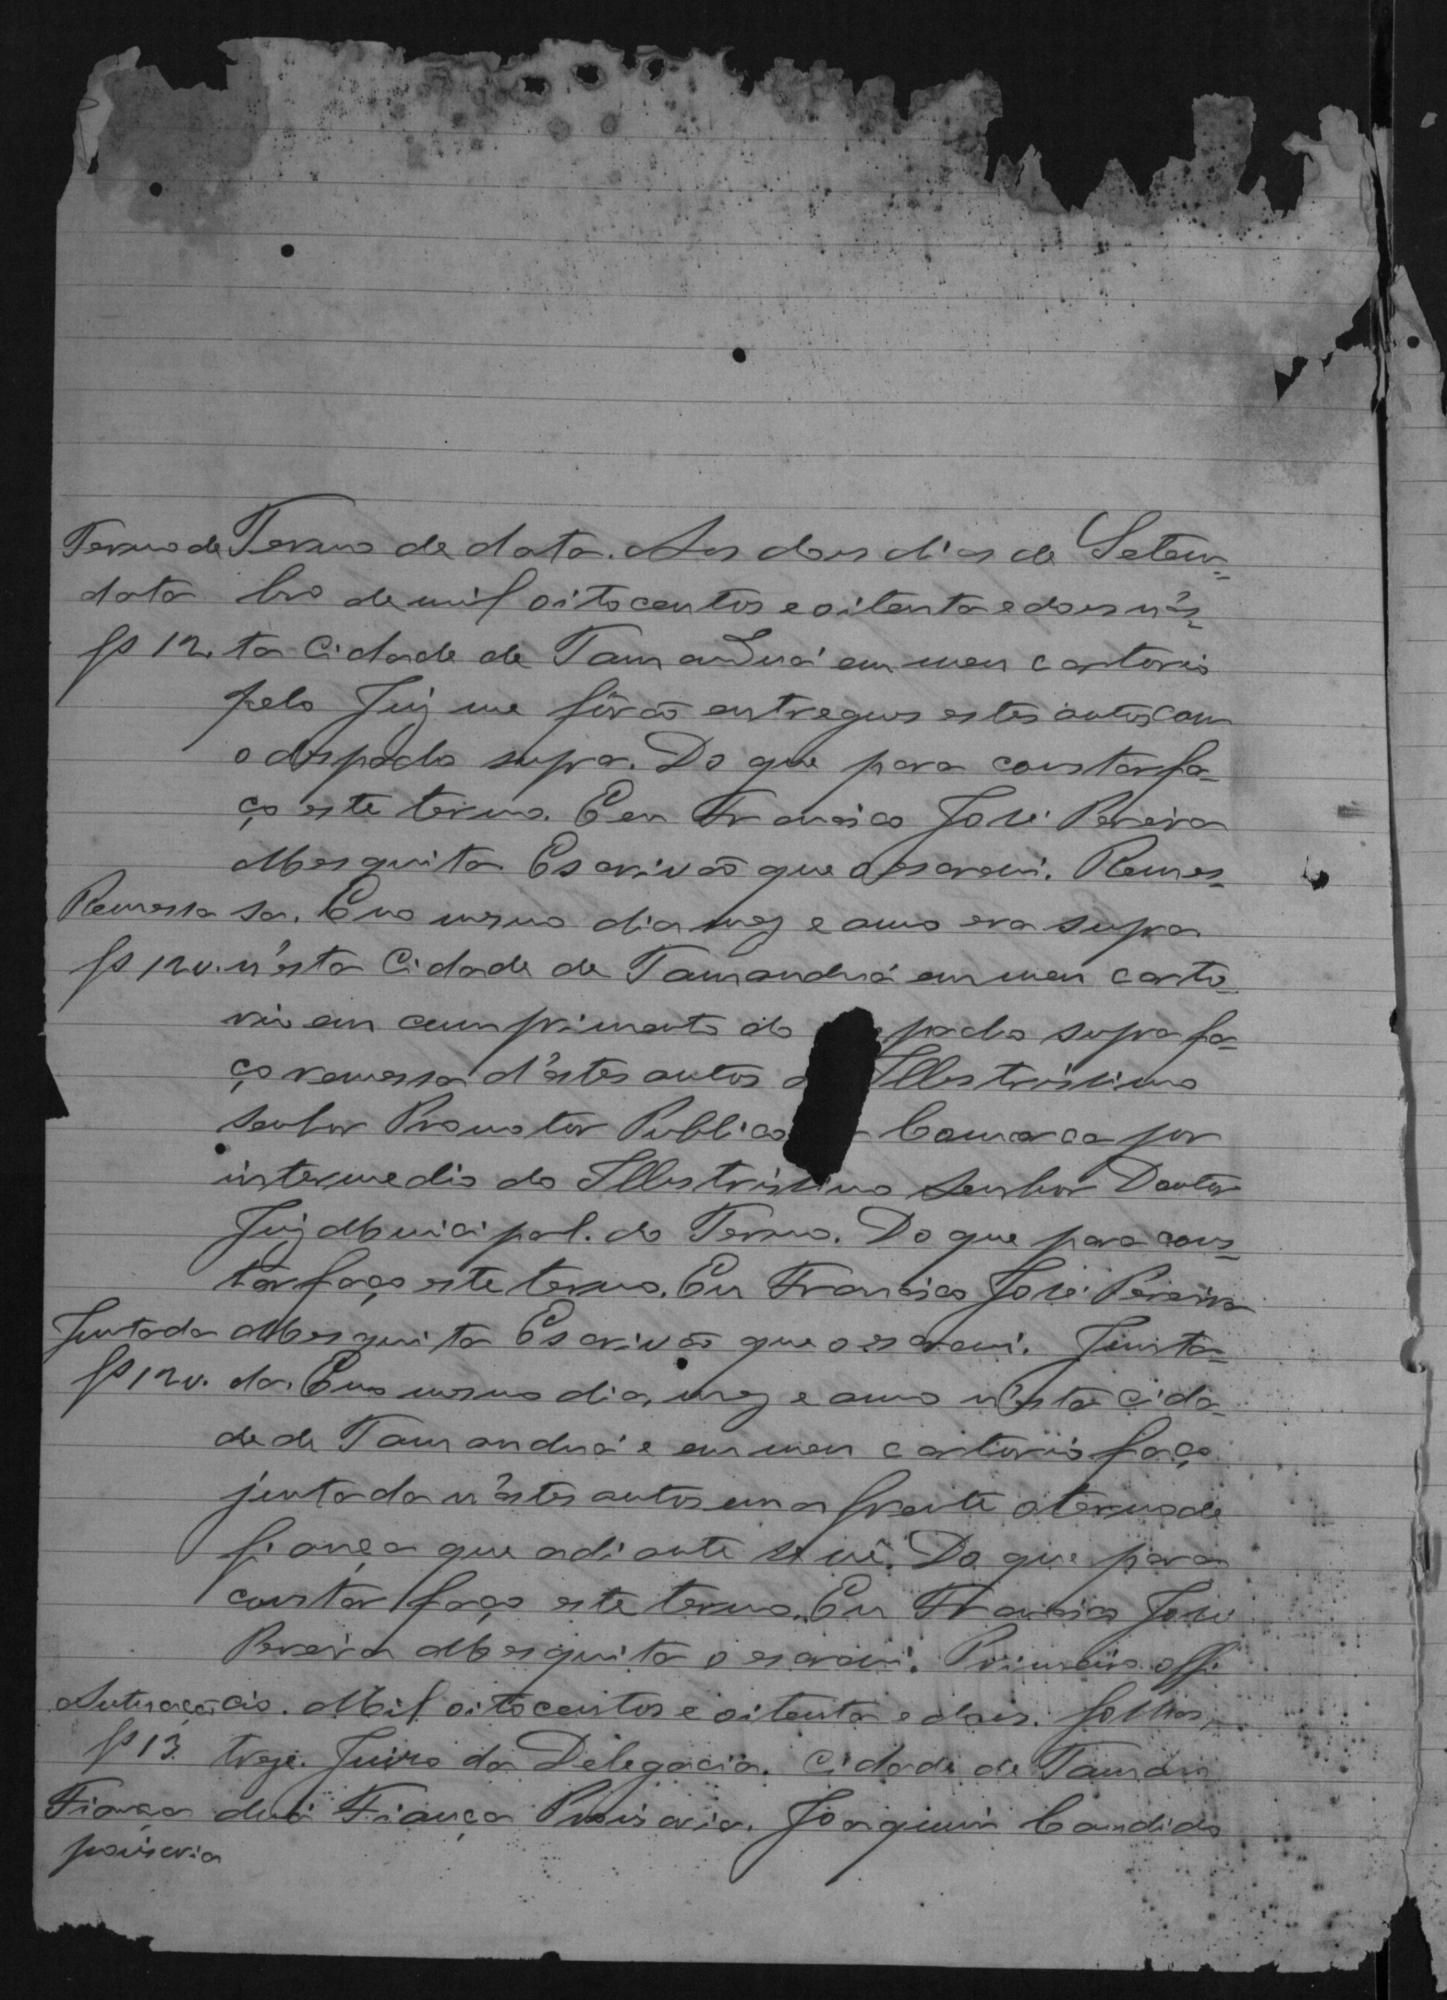 Termo de Termo de data. Aos dous dias de Setem=
data bro de mil oitocentos e oitenta e dous n'es=
fs 12. ta Cidade de Tamanduá em meu cartorio
pelo Juiz me fôrão entregues estes autos com
o despacho supra. Do que para constar fa-
ço este termo. Eu Francisco José Pereira
Mesquita Escrivão que o escrevi. Remes=
Remessa sa. E no mesmo dia mez e anno era supra
fs 12v. n'esta Cidade de Tamanduá em meu carto-
rio em cumprimento do pacho supra fa-
ço remessa d'estes autos Illustrissimo
Senhor Promotor Publico Comarca por
intermedio do Illustrissimo Senhor Doutor
Juiz Municipal do Termo. Do que para cons=
tar faço este termo. Eu Francisco José Pereira
Juntada Mesquita Escrivão que o escrevi. Junta=
fs 12v. da. E no mesmo dia, mez e anno n'esta cida-
de de Tamanduá e em meu cartorio faço
juntada n'estes autos em a frente o termo de
fiança que adiante se vê. Do que para
constar faço este termo. Eu Francisco José
Pereira Mesquita o escrevi. Primeiro offi
Autuação cio. Mil oitocentos e oitenta e dous. folhas
fs 13 treze. Juizo da Delegacia. Cidade de Taman
Fiança duá Fiança Provisoria. Joaquim Candido
provisoria